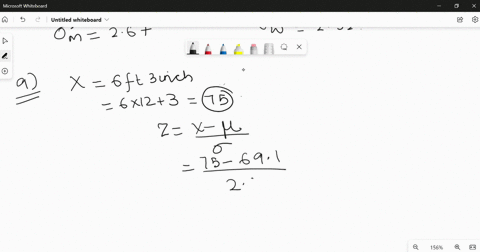 Microsoft Whiteboard
Untitled whiteboard
σm = 2.67
a) X = 6ft 3inch
= 6×12+3 = 75
Z = X-μ
σ
= 75-69.1
2.
156%